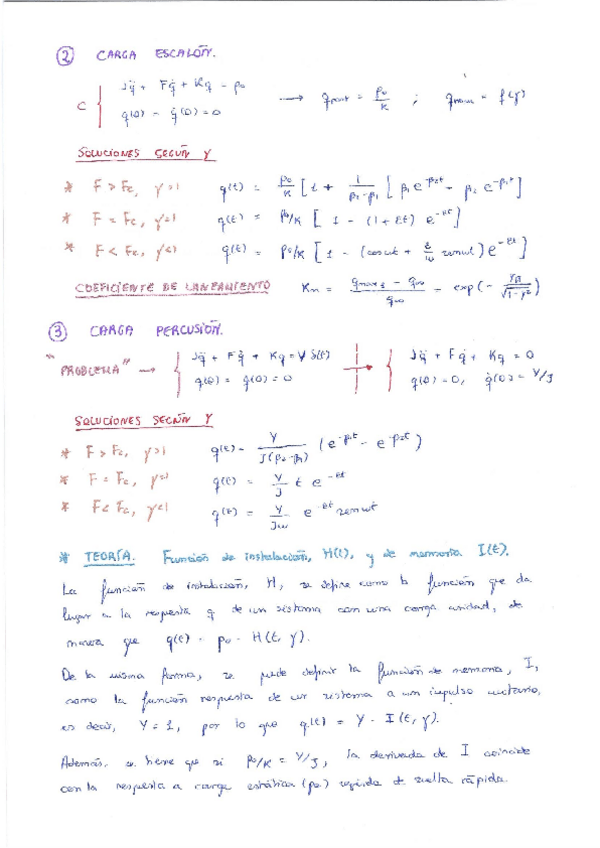 ② CARGA ESCALÓN.
C { Jq̈ + Fq̇ + Kq = p₀ → q = p₀/K ; = f(γ)
q(0) = q̇(0) = 0
SOLUCIONES SEGÚN γ
* F > Fc, γ>1 q(t) = p₀/K [1 + 1/(β₂-β₁) [β₁ e^-β₂t - β₂ e^-β₁t]
* F = Fc, γ=1 q(t) = p₀/K [1 - (1+Et) e^-Et]
* F < Fc, γ<1 q(t) = p₀/K [1 - (cosωt + E/ω senωt) e^-Et]
COEFICIENTE DE LANZAMIENTO = exp(- γπ/√1-γ²)
③ CARGA PERCUSIÓN.
"PROBLEMA" → { Jq̈ + Fq̇ + Kq = Y δ(t) → { Jq̈ + Fq̇ + Kq = 0
q(0) = q̇(0) = 0 q(0) = 0, q̇(0) = Y/J
SOLUCIONES SEGÚN γ
* F > Fc, γ>1 q(t) = Y/J(β₂-β₁) (e^-β₁t - e^-β₂t)
* F = Fc, γ=1 q(t) = Y/J t e^-Et
* F < Fc, γ<1 q(t) = Y/Jω e^-Et senωt
* TEORÍA. Función de instalación, H(t), y de memoria I(t).
La función de instalación, H, se define como la función que da
lugar a la respuesta q de un sistema con una carga unidad, de
manera que q(t) = p₀ · H(t, γ).
De la misma forma, se puede definir la función de memoria, I,
como la función respuesta de un sistema a un impulso unitario,
es decir, Y = 1, por lo que q(t) = Y · I(t, γ).
Además, se tiene que si p₀/K = Y/J, la derivada de I coincide
con la respuesta a carga estática (p₀) seguida de suelta rápida.